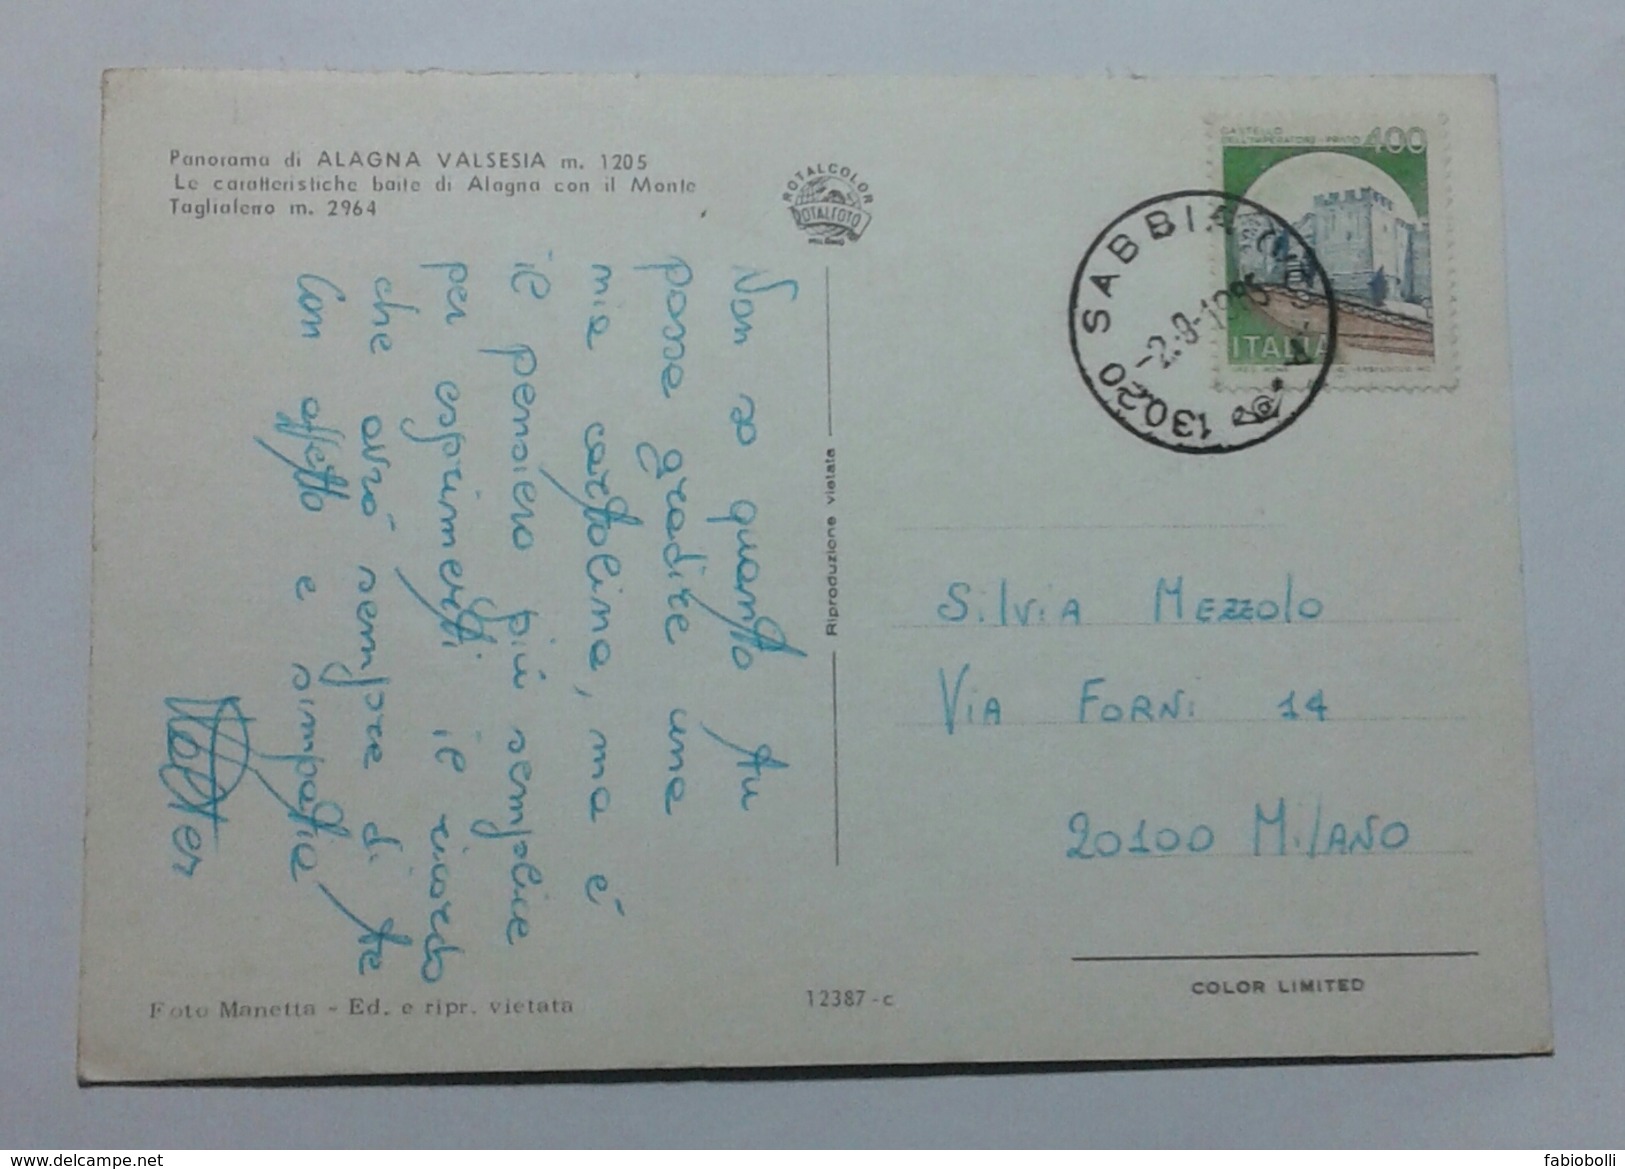 Panorama di ALAGNA VALSESIA m. 1205
Le caratteristiche baite di Alagna con il Monte
Tagliaferro m. 2964
ROTALCOLOR
ROTALFOTO
MILANO
CASTELLO
DELL'IMPERATORE - PRATO 400
ITALIA
13020 SABBIA
-2.8-1985
Non so quanto tu
possa gradire una
mia cartolina, ma è
il pensiero più semplice
per esprimerti il ricordo
che avrò sempre di te
Con affetto e simpatia
Walter
Riproduzione vietata
Silvia Mezzolo
Via Forni 14
20100 Milano
COLOR LIMITED
Foto Manetta - Ed. e ripr. vietata
12387-c
fabiobolli
www.delcampe.net